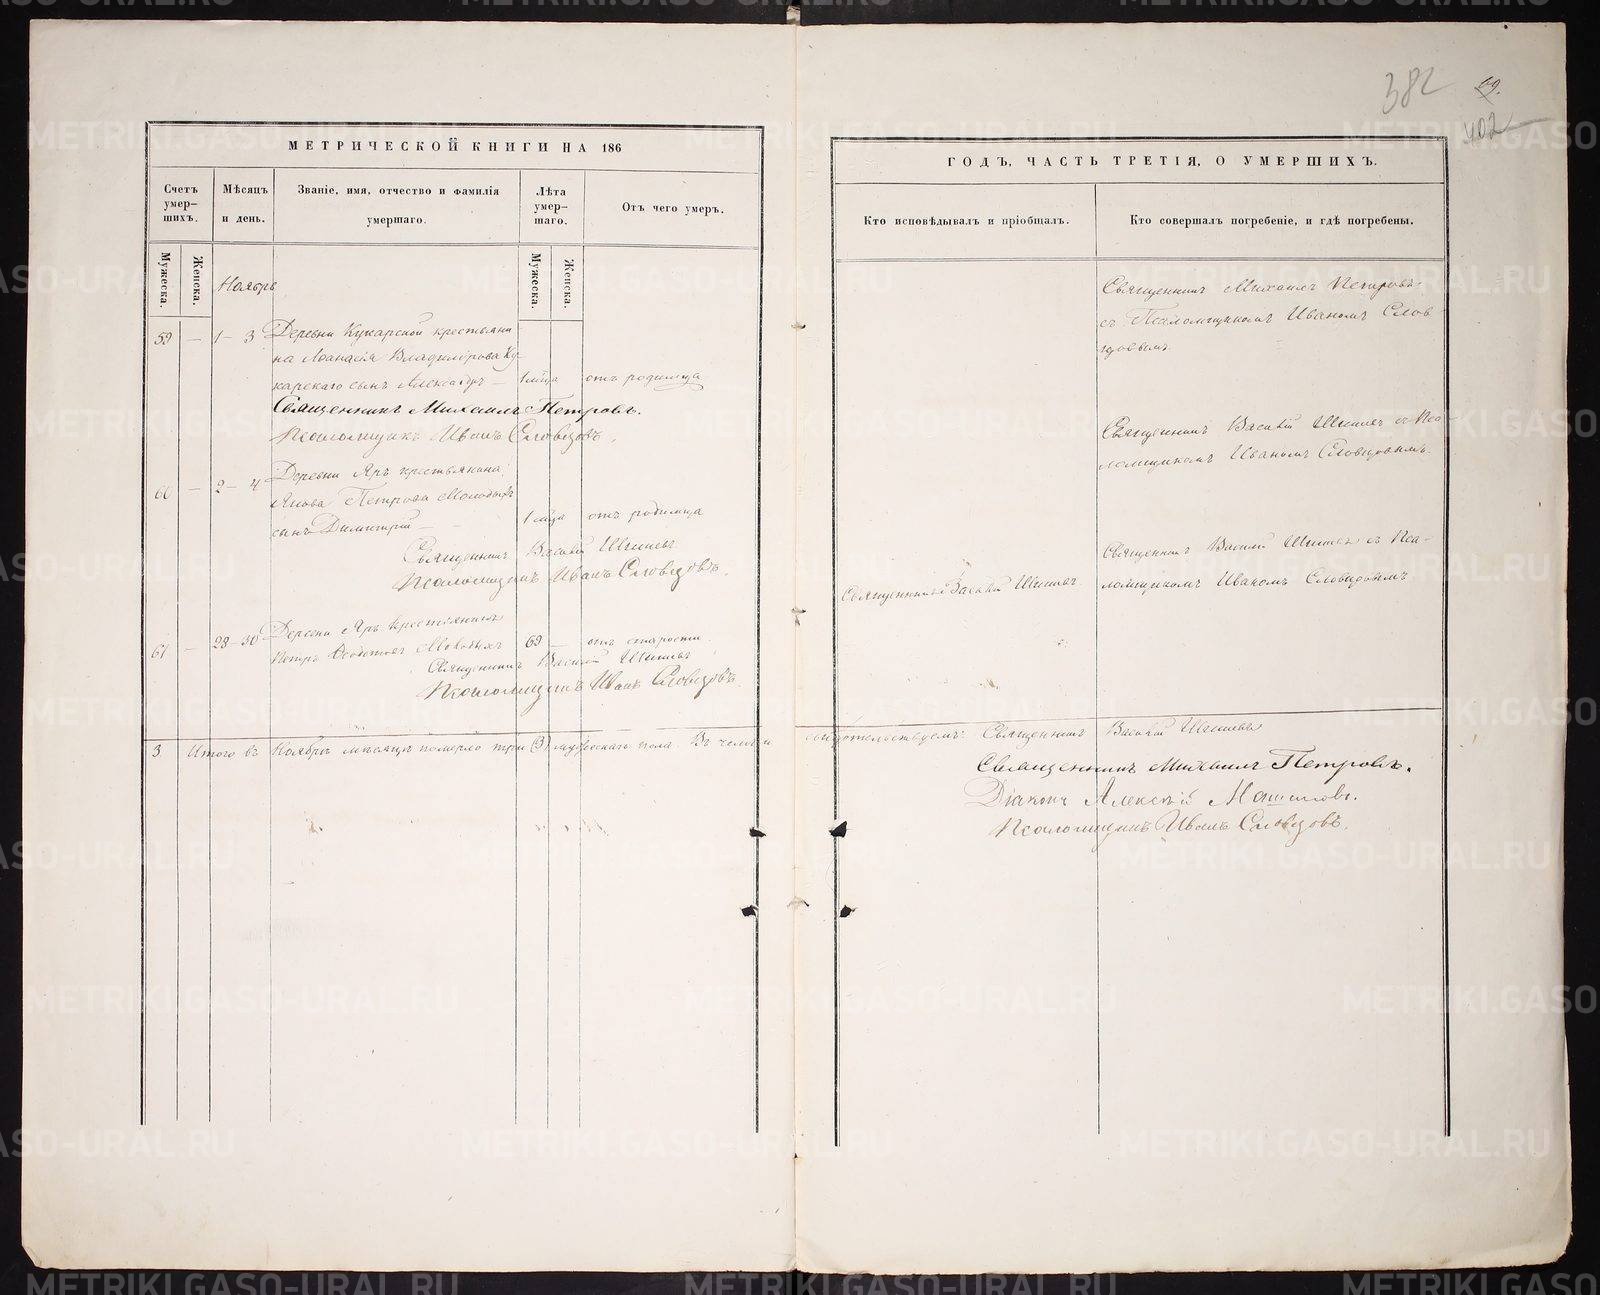 382
402
МЕТРИЧЕСКОЙ КНИГИ НА 186
Счетъ умер-шихъ.
Мѣсяцъ и день.
Званіе, имя, отчество и фамилія умершаго.
Лѣта умер-шаго.
Отъ чего умеръ.
Мужеска.
Женска.
Мужеска.
Женска.
Ноябрь
59 — 1— 3 Деревни Кукарской крестьяни
на Аѳанасія Владимірова Ку
карскаго сынъ Александръ — 1 мѣца отъ родимца
Священникъ Михаилъ Петровъ.
Псаломщикъ Иванъ Словцовъ.
60 — 2— 4 Деревни Яръ крестьянина
Якова Петрова Молодыхъ
сынъ Димитрій — 1 мѣца отъ родимца
Священникъ Василій Шишевъ
Псаломщикъ Иванъ Словцовъ.
61 — 28—30 Деревни Яръ крестьянинъ
Петръ Молодыхъ 69 — отъ старости
Священникъ Василій Шишевъ
Псаломщикъ Иванъ Словцовъ.
3 Итого въ Ноябрѣ мѣсяцѣ померло три (3) мужескаго пола. Въ чемъ и
ГОДЪ, ЧАСТЬ ТРЕТІЯ, О УМЕРШИХЪ.
Кто исповѣдывалъ и пріобщалъ.
Кто совершалъ погребеніе, и гдѣ погребены.
Священникъ Михаилъ Петровъ
съ Псаломщикомъ Иваномъ Слов-
цовымъ.
Священникъ Василій Шишевъ съ Пса
ломщикомъ Иваномъ Словцовымъ.
Священникъ Василій Шишевъ съ Пса-
Священникъ Василій Шишевъ. ломщикомъ Иваномъ Словцовымъ
свидѣтельствуемъ: Священникъ Василій Шишевъ
Священникъ Михаилъ Петровъ.
Діаконъ Алексѣй
Псаломщикъ Иванъ Словцовъ.
METRIKI.GASO-URAL.RU